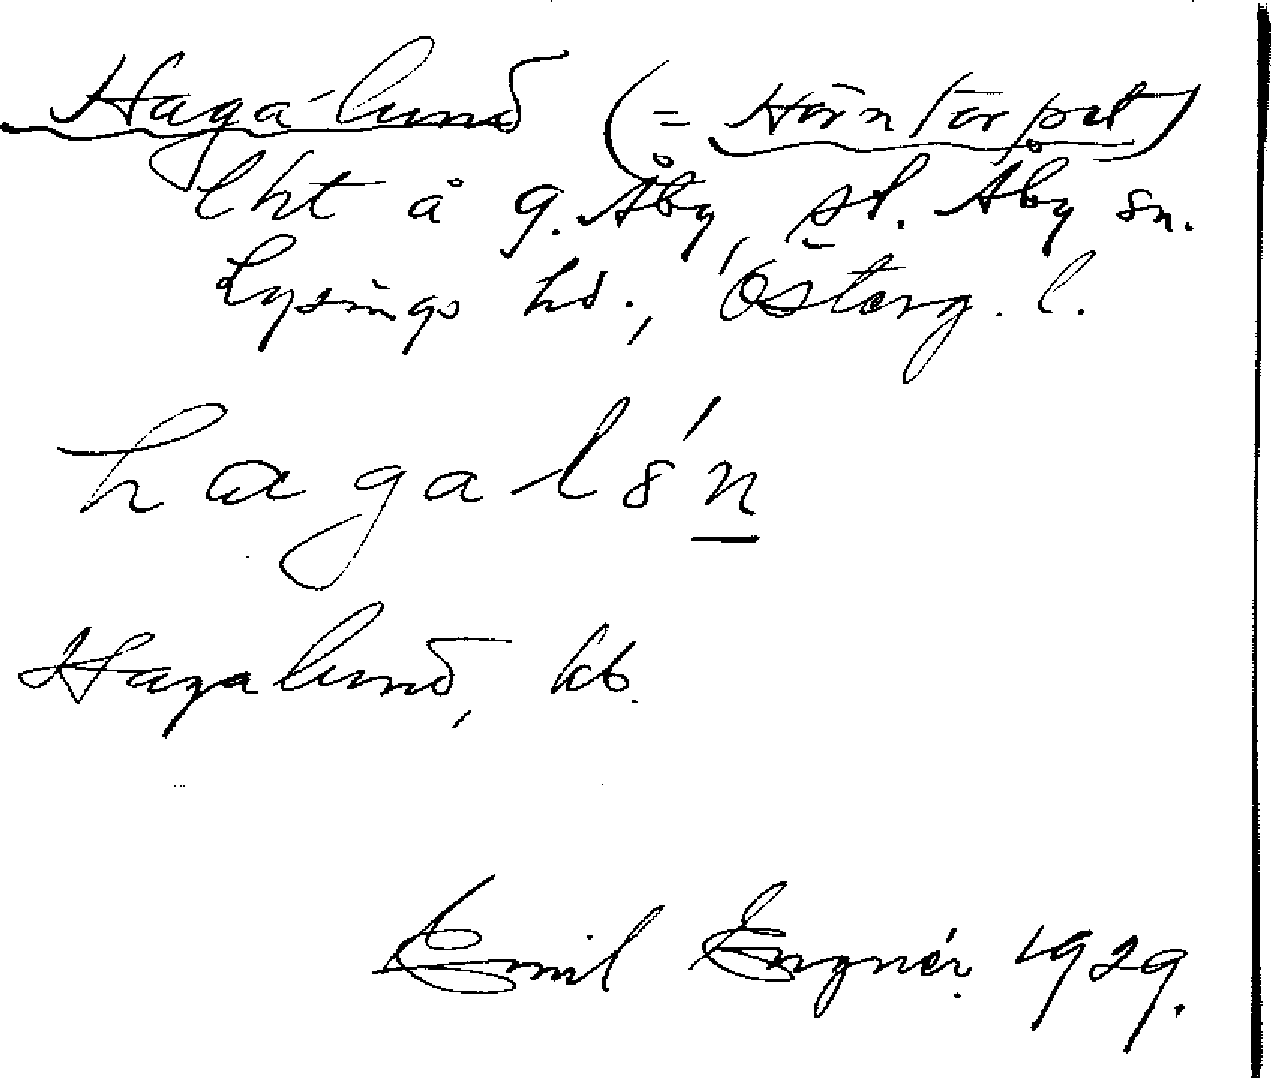 Hagalund (= Hörntorpet)
lht å g. Åby, sd. Åby sn.
Lysings hd., Österg. l.
hagalún
Hagalund, kb.
Emil Engnér. 1929.